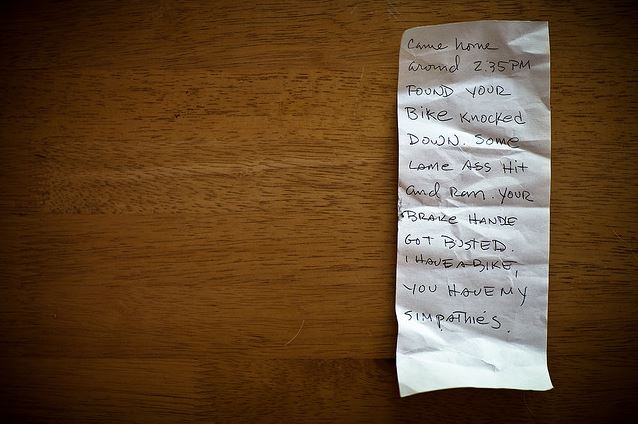 Came home
around 2:35PM
FOUND YOUR
Bike Knocked
DOWN. Some
LAME ASS Hit
and Ran. YOUR
BRAKE HANDLE
GOT BUSTED.
I HAVE A BIKE,
YOU HAVE MY
SIMPATHIES.